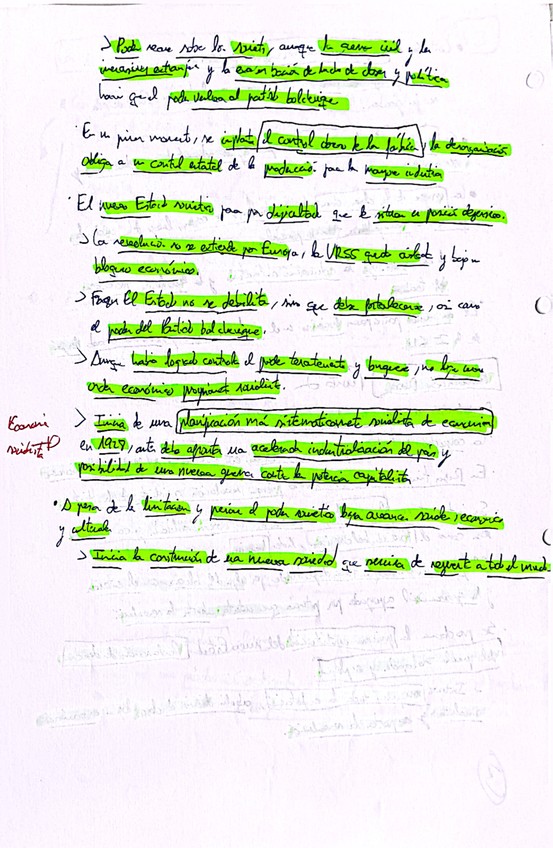 > Poder recae sobre los soviets, aunque la guerra civil y las
invasiones extranjeras y la exacerbación de lucha de clases y política
hacen que el poder vuelva al partido bolchevique
· En un primer momento, se implanta el control obrero de las fábricas, la desorganización
obliga a un control estatal de la producción para la mayor industria
· El nuevo Estado soviético pasa por dificultades que le sitúan en posición defensiva.
> La revolución no se extiende por Europa, la URSS queda aislada y bajo
bloqueo económico.
> El Estado no se debilita, sino que debe fortalecerse, así como
el poder del Partido bolchevique.
> Aunque había logrado controlar el poder terrateniente y burgués, no logra un
orden económico propiamente socialista.
Economía
soviética
> Inicia de una planificación más sistemáticamente socialista de economía
en 1928, ante debe afrontar una acelerada industrialización del país y
posibilidad de una nueva guerra contra la potencia capitalista
· A pesar de las limitaciones y penurias el poder soviético logra avances sociales, económicos
y culturales
> Inicia la construcción de una nueva sociedad que serviría de referente a todo el mundo.